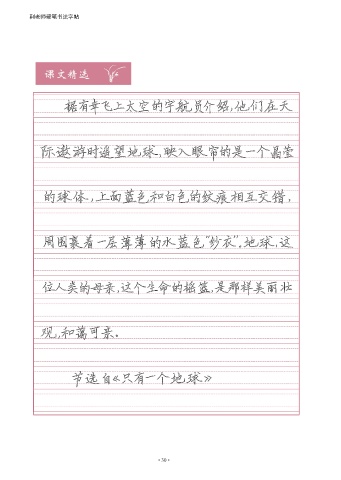 田老师硬笔书法字帖
课文精选
据有幸飞上太空的宇航员介绍,他们在天
际遨游时遥望地球,映入眼帘的是一个晶莹
的球体,上面蓝色和白色的纹痕相互交错,
周围裹着一层薄薄的水蓝色“纱衣”。地球,这
位人类的母亲,这个生命的摇篮,是那样美丽壮
观,和蔼可亲。
节选自《只有一个地球》
·30·